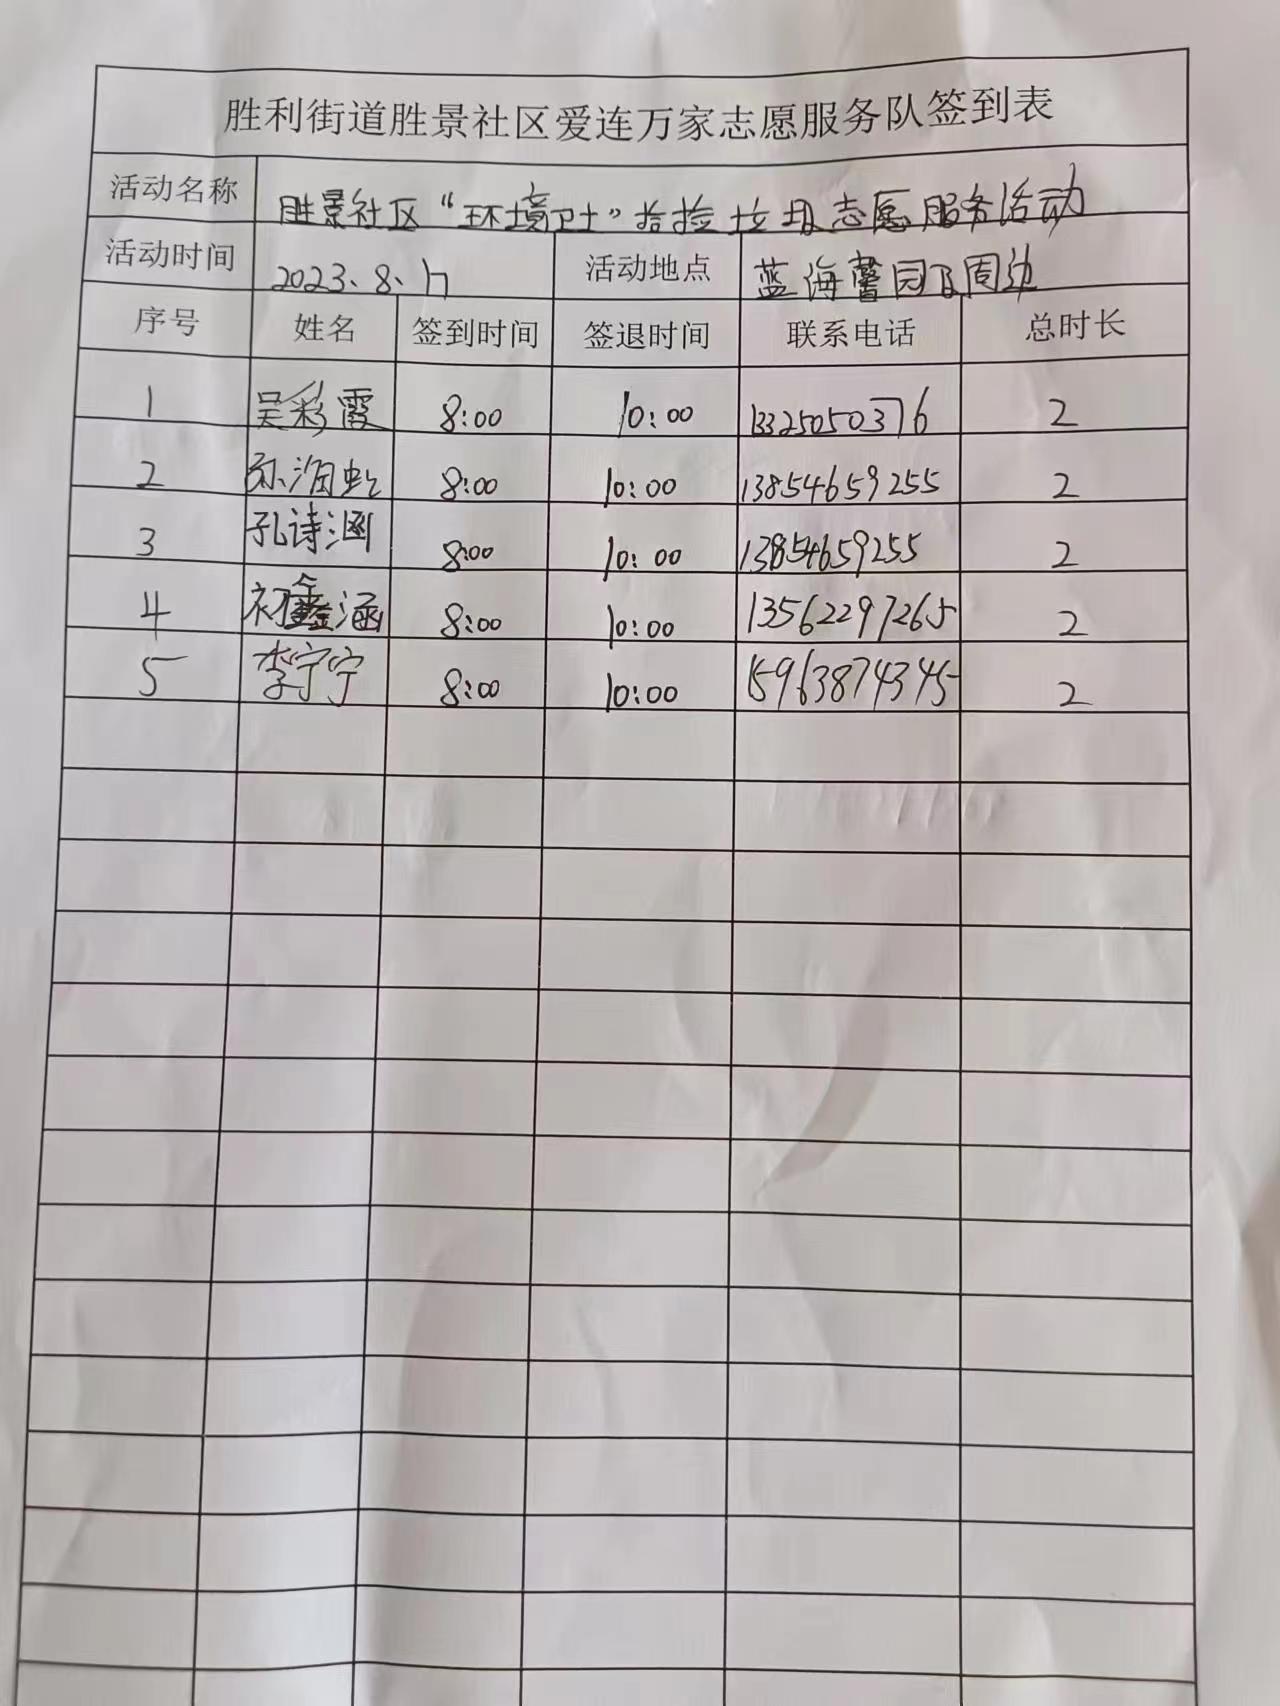 胜利街道胜景社区爱连万家志愿服务队签到表
活动名称 胜景社区“环境卫士”拾捡垃圾志愿服务活动
活动时间 2023.8.17 活动地点 蓝海馨园及周边
序号 姓名 签到时间 签退时间 联系电话 总时长
1 吴彩霞 8:00 10:00 13325050376 2
2 孙海虹 8:00 10:00 13854659255 2
3 孔诗涵 8:00 10:00 13854659255 2
4 初鑫涵 8:00 10:00 13562297265 2
5 李宁宁 8:00 10:00 15963874345 2